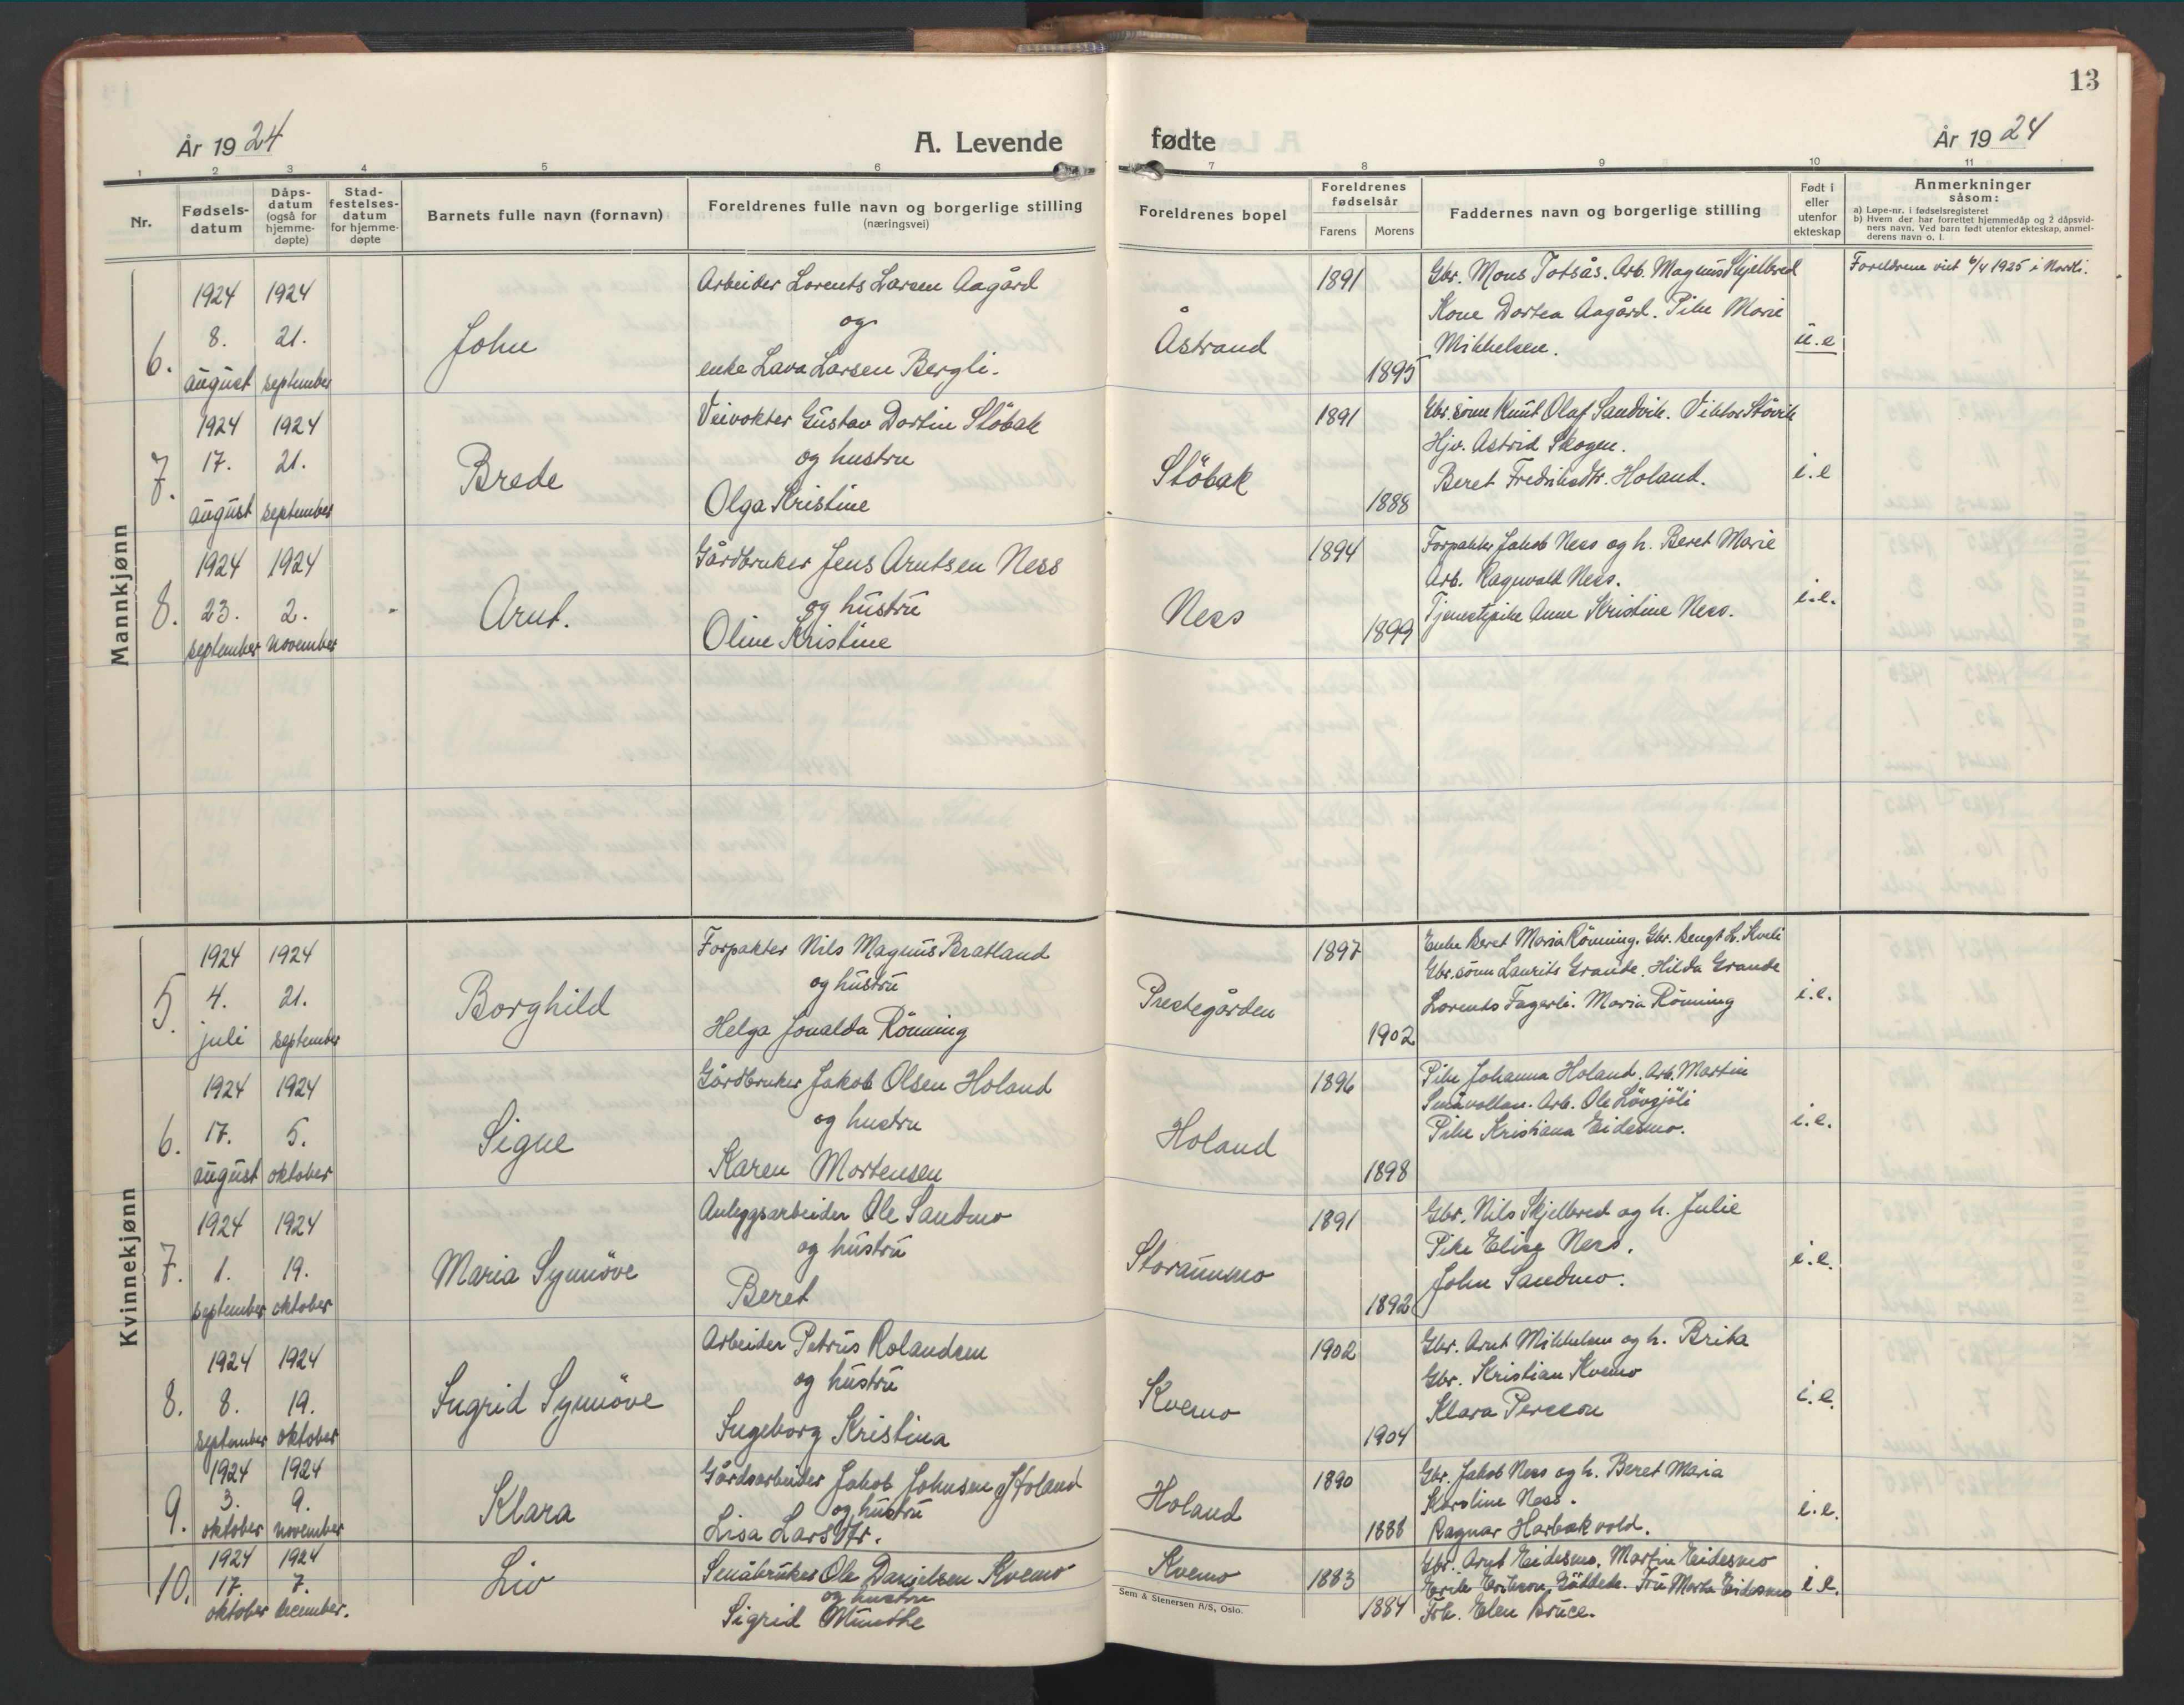 13
År 1924
A. Levende fødte
År 1924
1 2 3 4 5 6 7 8 9 10 11
Nr.
Fødselsdatum
Dåpsdatum (også for hjemmedøpte)
Stadfestelsesdatum for hjemmedøpte
Barnets fulle navn (fornavn)
Foreldrenes fulle navn og borgerlige stilling
(næringsvei)
Foreldrenes bopel
Foreldrenes fødselsår
Farens Morens
Faddernes navn og borgerlige stilling
Født i eller utenfor ekteskap
Anmerkninger
såsom:
a) Løpe-nr. i fødselsregisteret
b) Hvem der har forrettet hjemmedåp og 2 dåpsvidners navn. Ved barn født utenfor ekteskap, anmelderens navn o. l.
Mannkjønn
6.
1924 8. august
1924 21. september
John
Arbeider Lorents Larsen Aagård
og
enke Lava Larsen Bergli.
Åstrand
1891
1895
Gbr. Mons Totsås. Arb. Magnus Skjelbred
Kone Dortea Aagård. Pike Marie
Mikkelsen.
u.e
Foreldrene viet 6/4 1925 i Nordli.
7.
1924 17. august
1924 21. september
Brede
Veivokter Gustav Dortin Støbak
og hustru
Olga Kristine
Støbak
1891
1888
Gbr.sønn Knut Olaf Sandvik. Viktor Støvik
Hjv. Astrid Skogen.
Beret Fredriksdtr. Holand.
i.e
8.
1924 23. september
1924 2. november
Arnt.
Gårdbruker Jens Arntsen Ness
og hustru
Oline Kristine
Ness
1894
1899
Forpakter Jakob Ness og h. Beret Marie
Arb. Ragnvald Ness.
Tjenestepike Anne Kristine Ness.
i.e.
Kvinnekjønn
5.
1924 4. juli
1924 21. september
Borghild
Forpakter Nils Magnus Bratland
og hustru
Helga Jonalda Rönning
Prestegården
1897
1902
Enke Beret Maria Rönning. Gbr. Bengt L. Kveli
Gbr.sønn Laurits Grande. Hilda Grande
Lorents Fagerli. Maria Rönning
i.e.
6.
1924 17. august
1924 5. oktober
Signe
Gårdbruker Jakob Olsen Holand
og hustru
Karen Mortensen
Holand
1896
1898
Pike Johanna Holand. Arb. Martin
Småvollan. Arb. Ole Lövsjöli
Pike Kristiana Eidesmo.
i.e.
7.
1924 1. september
1924 19. oktober
Maria Synnöve
Anleggsarbeider Ole Sandmo
og hustru
Beret
Storaunmo
1891
1892
Gbr. Nils Skjelbred og h. Julie
Pike Elise Ness.
John Sandmo.
i.e.
8.
1924 8. september
1924 19. oktober
Ingrid Synnöve
Arbeider Petrus Rolandsen
og hustru
Ingeborg Kristina
Kvemo
1902
1904
Gbr. Arnt Mikkelsen og h. Brita
Gbr. Kristian Kvemo
Klara Persson
i.e.
9.
1924 3. oktober
1924 9. november
Klara
Gårdsarbeider Jakob Johnsen Holand
og hustru
Lisa Larsdtr.
Holand
1890
1888
Gbr. Jakob Ness og h. Beret Maria
Karoline Ness.
Ragnar Harbakvold.
i.e.
10.
1924 17. oktober
1924 7. december.
Liv
Småbruker Ole Danielsen Kvemo
og hustru
Sigrid Munthe
Kvemo
1883
1884
Gbr. Arnt Eidesmo. Martin Eidesmo
Erik Erikson, Gäddede. Fru Marta Eidesmo
Frk. Elen Bruce.
i.e.
Sem & Stenersen A/S, Oslo.